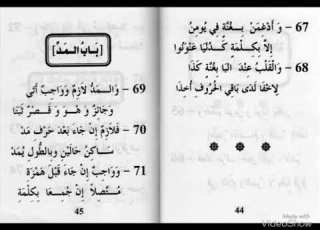 67 - وَأَدْغِمَنْ بِغُنَّةٍ فِي يُومِنُ
إِلَّا بِكِلْمَةٍ كَدُنْيَا عَنْوَنُوا
68 - وَالْقَلْبُ عِنْدَ الْبَا بِغُنَّةٍ كَذَا
لِاخْفَا لَدَى بَاقِي الْحُرُوفِ أُخِذَا
44
[بَابُ الْمَدِّ]
69 - وَالْمَدُّ لَازِمٌ وَوَاجِبٌ أَتَى
وَجَائِزٌ وَهْوَ وَقَصْرٌ ثَبَتَا
70 - فَلَازِمٌ إِنْ جَاءَ بَعْدَ حَرْفِ مَدّْ
سَاكِنُ حَالَيْنِ وَبِالطُّولِ يُمَدّْ
71 - وَوَاجِبٌ إِنْ جَاءَ قَبْلَ هَمْزَةِ
مُتَّصِلًا إِنْ جُمِعَا بِكِلْمَةِ
45
Made with
VideoShow